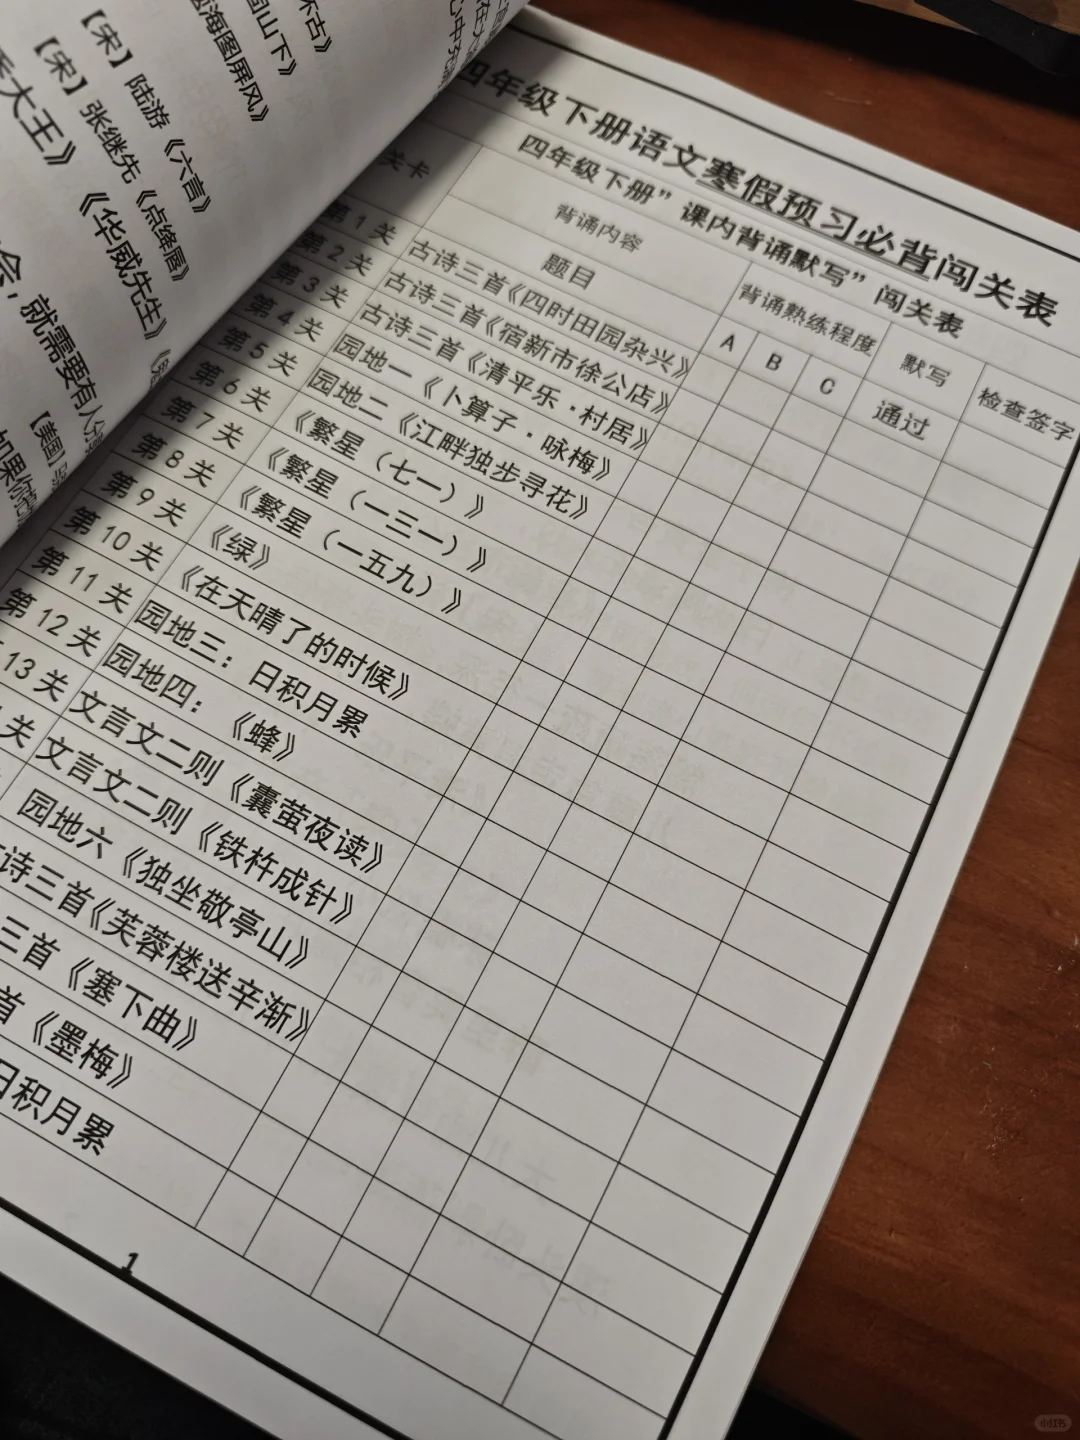 怀古》
固山下》
题海图屏风》
【宋】陆游《六言》
【宋】张继先《点绛唇》
大王》《华威先生》
会，就需要有人
【美国】
如果你
四年级下册语文寒假预习必背闯关表
四年级下册”课内背诵默写”闯关表
关卡 背诵内容 背诵熟练程度 默写 检查签字
题目 A B C 通过
第1关 古诗三首《四时田园杂兴》
第2关 古诗三首《宿新市徐公店》
第3关 古诗三首《清平乐·村居》
第4关 园地一《卜算子·咏梅》
第5关 园地二《江畔独步寻花》
第6关 《繁星（七一）》
第7关 《繁星（一三一）》
第8关 《繁星（一五九）》
第9关 《绿》
第10关 《在天晴了的时候》
第11关 园地三：日积月累
第12关 园地四：《蜂》
13关 文言文二则《囊萤夜读》
关 文言文二则《铁杵成针》
园地六《独坐敬亭山》
诗三首《芙蓉楼送辛渐》
三首《塞下曲》
首《墨梅》
日积月累
1